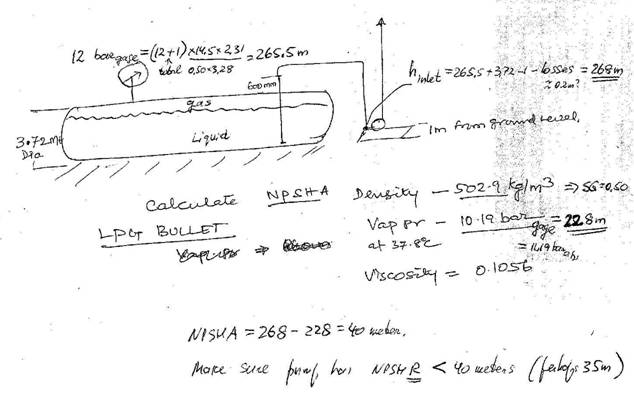 12 bar gage = (12+1) x 14.5 x 2.31 = 265.5 m
total 0.50 x 3.28
600mm
gas
Liquid
3.72 Mt
Dia
h inlet = 265.5 + 3.72 - 1 - losses = 268m
≈ 0.2m?
1m from ground level.
Calculate NPSHA
LPG BULLET
Density - 502.9 kg/m³ ⇒ SG = 0.50
Vap pr - 10.19 bar gage = 228m
at 37.8°C = 11.19 bar abs
Viscosity = 0.1056
NPSHA = 268 - 228 = 40 meters.
Make sure pump has NPSHR < 40 meters (perhaps 35m)